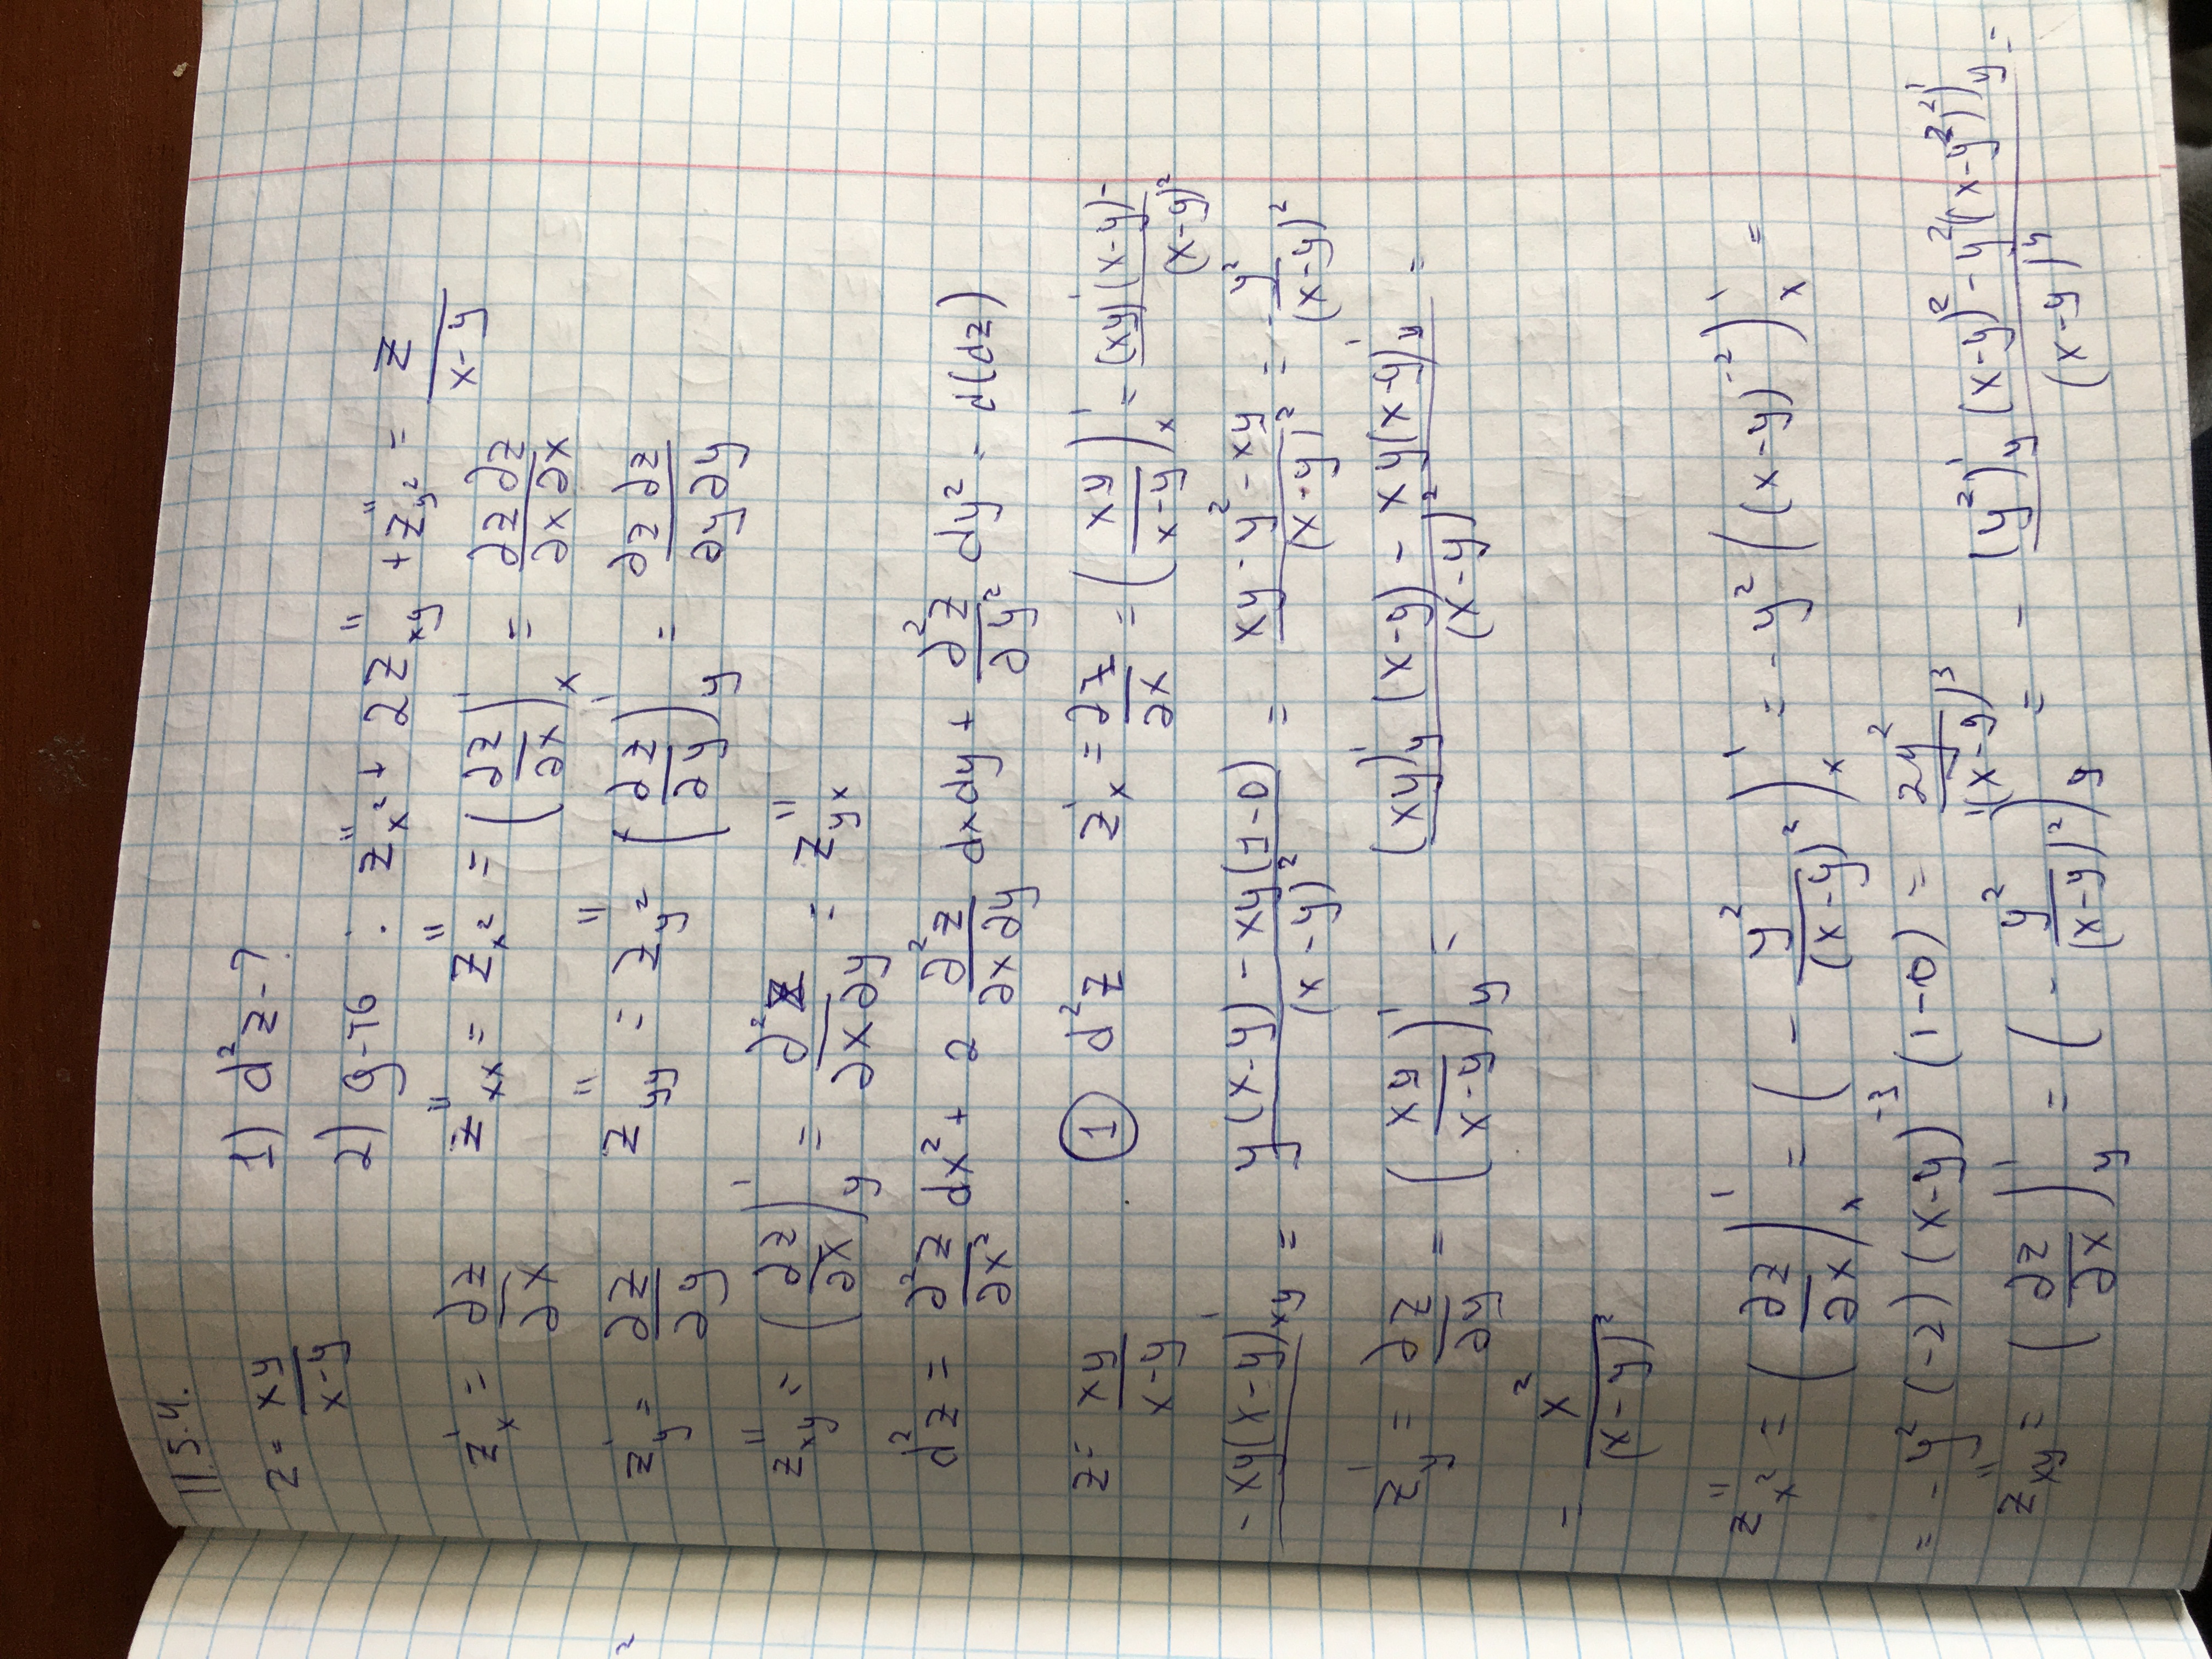 11.5.4.
z = xy/(x-y) 1) d²z - ?
2) g-тб : z''_x² + 2z''_xy + z''_y² = z/(x-y)
z'_x = ∂z/∂x z''_xx = z''_x² = (∂z/∂x)'_x = ∂z∂z/∂x∂x
z'_y = ∂z/∂y z''_yy = z''_y² (∂z/∂y)'_y = ∂z∂z/∂y∂y
z''_xy = (∂z/∂x)'_y = ∂²z/∂x∂y = z''_yx
d²z = ∂²z/∂x² dx² + 2 ∂²z/∂x∂y dxdy + ∂²z/∂y² dy² - d(dz)
z = xy/(x-y) ① d²z z'_x = ∂z/∂x = (xy/(x-y))'_x = (xy)'(x-y)-/(x-y)²
-xy(x-y)'_xy = (y(x-y) - xy(1-0))/(x-y)² = (xy-y²-xy)/(x-y)² = -y²/(x-y)²
z'_y = ∂z/∂y = (xy/(x-y))'_y = ((xy)'_y (x-y) - xy(x-y)'_y)/(x-y)² =
= x²/(x-y)²
z''_x² = (∂z/∂x)'_x = (- y²/(x-y)²)'_x = -y² ((x-y)⁻²)'_x =
= -y² (-2) (x-y)⁻³ (1-0) = 2y²/(x-y)³
z''_xy = (∂z/∂x)'_y = (- y²/(x-y)²)'_y = - ((y²)'_y (x-y)² - y²((x-y²)²)'_y)/(x-y)⁴ =